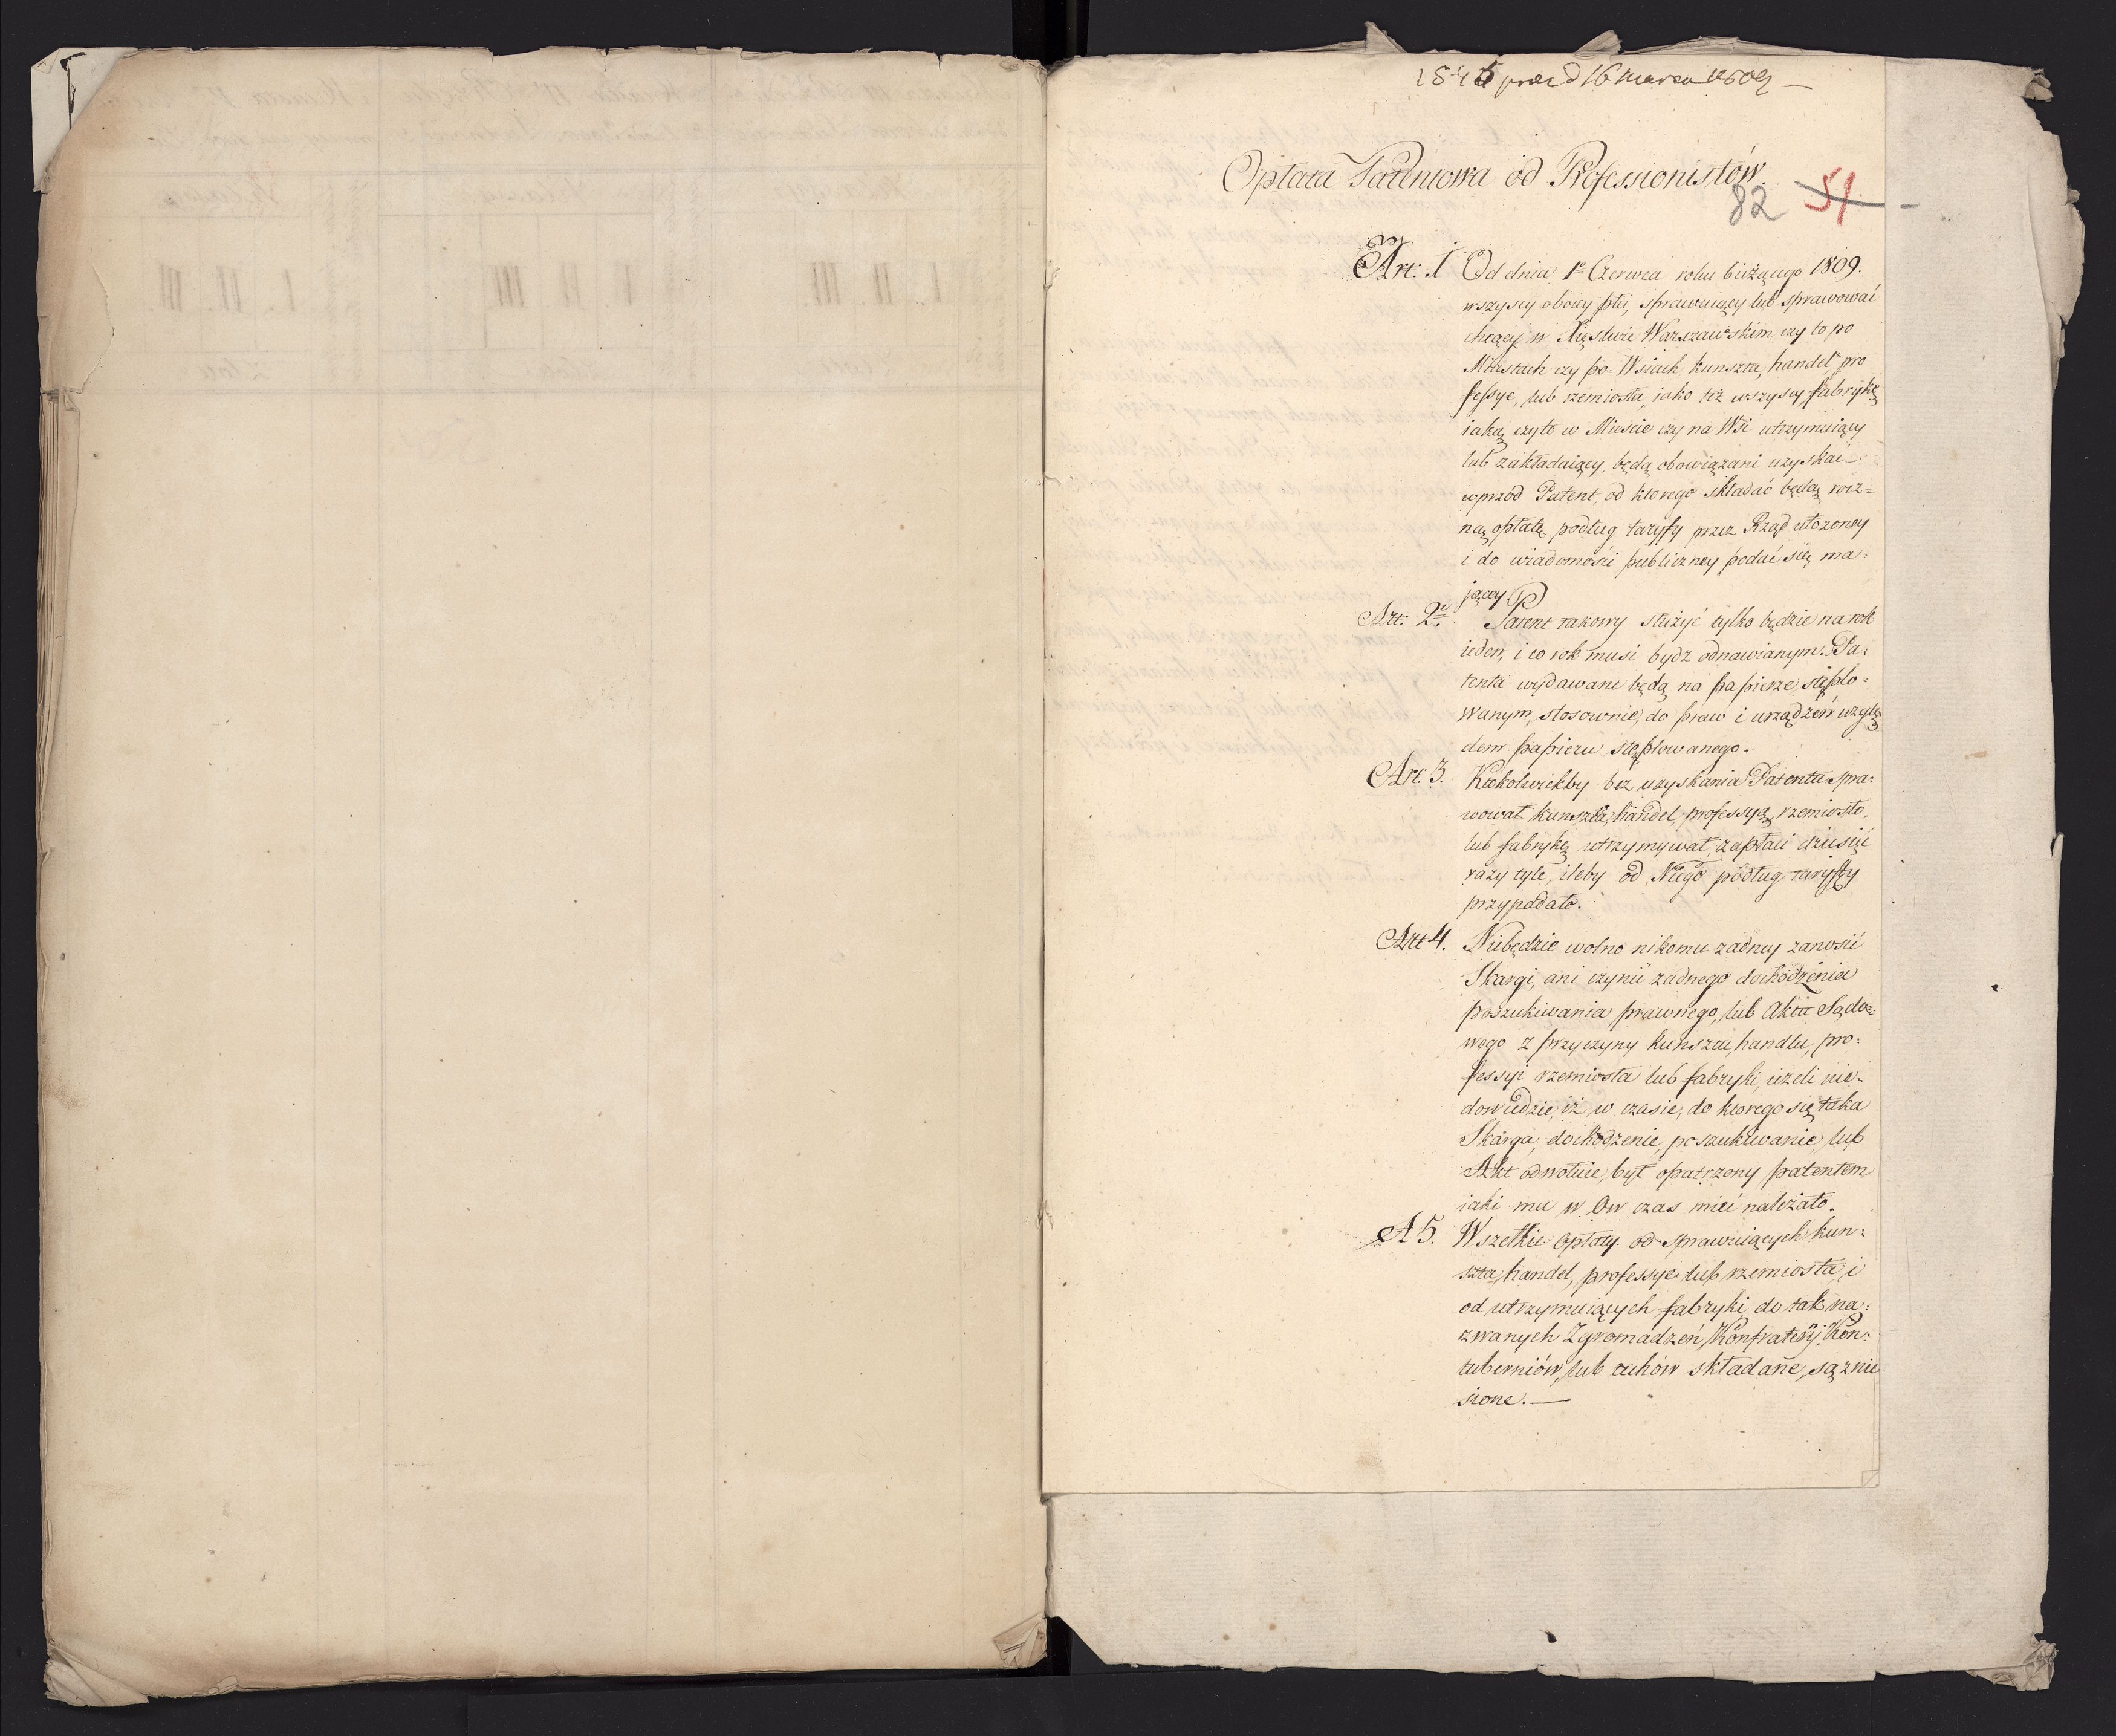 16 Marca 1809 —
Opłata Patentowa od Professionistów.
82 51
Art: 1 Od dnia 1o Czerwca roku bieżącego 1809.
wszyscy oboiey płci, sprawuiący lub sprawować
chcący w Xięstwie Warszawskim czy to po
Miastach czy po Wsiach, kunszta, handel, pro
fessye, lub rzemiosła, iako też wszyscy fabrykę
iaką czyto w Mieście czy na Wsi utrzymuiący
lub zakładaiący, będą obowiązani uzyskać
wprzód Patent, od ktorego składać będą rocz=
ną opłatę, podług taryffy przez Rząd ułożoney
i do wiadomości publiczney podać się ma=
jącey
Art: 2i. Patent takowy służyć tylko będzie na rok
ieden, i co rok musi bydz odnawianym. Pa=
tenta wydawane będą na papierze stęplo=
wanym, stosownie do praw i urządzeń wzglę
dem papieru stęplowanego.
Art. 3. Ktokolwiekby bez uzyskania Patentu spra=
wował kunszta, handel, professyą, rzemiosło,
lub fabrykę utrzymywał, zapłaci dziesięć
razy tyle, ileby od Niego podług taryffy
przypadało.
Art 4. Niebędzie wolno nikomu żadney zanosić
Skargi, ani czynić żadnego dochodzenia
poszukiwania prawnego, lub Aktu Sądo=
wego z przyczyny kunsztu, handlu, pro=
fessyi rzemiosła lub fabryki, ieżeli nie=
dowiedzie, iż w czasie, do ktorego się taka
Skarga, dochodzenie, poszukiwanie, lub
Akt odwołuie, był opatrzony patentem
iaki mu w Ow czas mieć należało.
A 5. Wszelkie opłaty od sprawuiących kun=
szta, handel, professye lub rzemiosła i
od utrzymuiących fabryki do tak na=
zwanych Zgromadzeń, Konfraterÿi, Kon=
tuberniów, lub cechów składane, są znie
sione. —